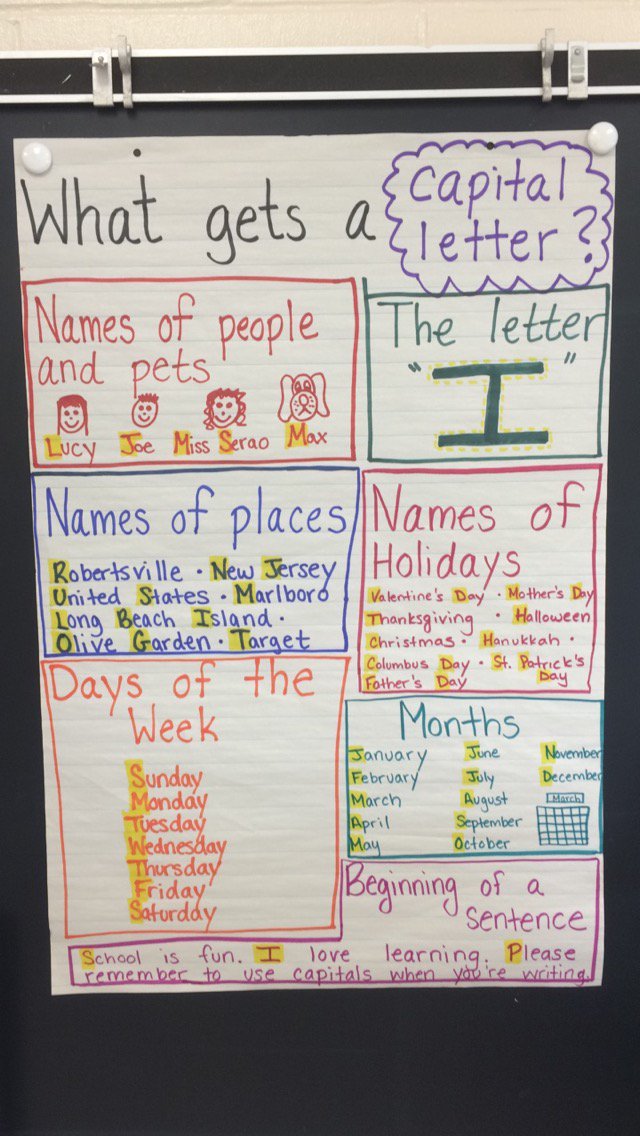 What gets a
capital
letter?
Names of people
and pets
Lucy Joe Miss Serao Max
The letter
"I"
Names of places
Robertsville · New Jersey
United States · Marlboro
Long Beach Island ·
Olive Garden · Target
Names of
Holidays
Valentine's Day · Mother's Day
Thanksgiving · Halloween
Christmas · Hanukkah ·
Columbus Day · St. Patrick's
Father's Day Day
Days of the
Week
Sunday
Monday
Tuesday
Wednesday
Thursday
Friday
Saturday
Months
January June November
February July December
March August March
April September
May October
Beginning of a
sentence
School is fun. I love learning. Please
remember to use capitals when you're writing.